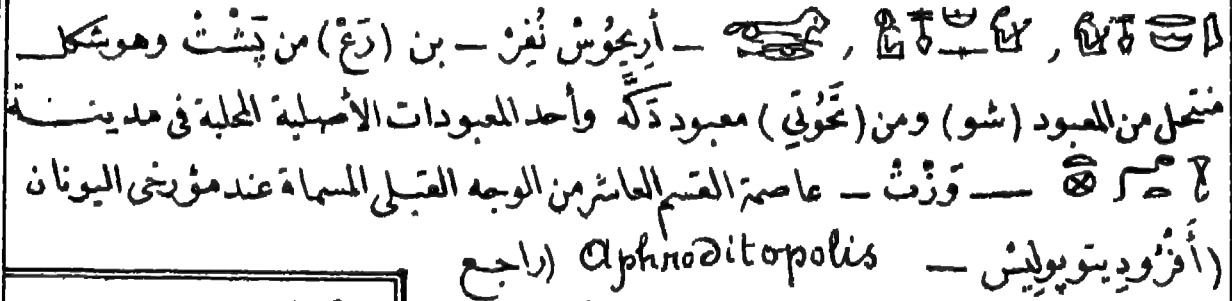 – أَرِيحُوسْ نُفِرْ – بن (رَعْ) من پَشْتْ وهو بشكل
منتحل من المعبود (شو) ومن (تَحُوتِي) معبود دَكَّه وأحد المعبودات الأصلية المحلية فى مدينة
— وَزْتْ – عاصمة القسم العاشر من الوجه القبلى المسماة عند مؤرخى اليونان
(أَفْرُودِيتوپوليِسْ – Aphroditopolis (راجع